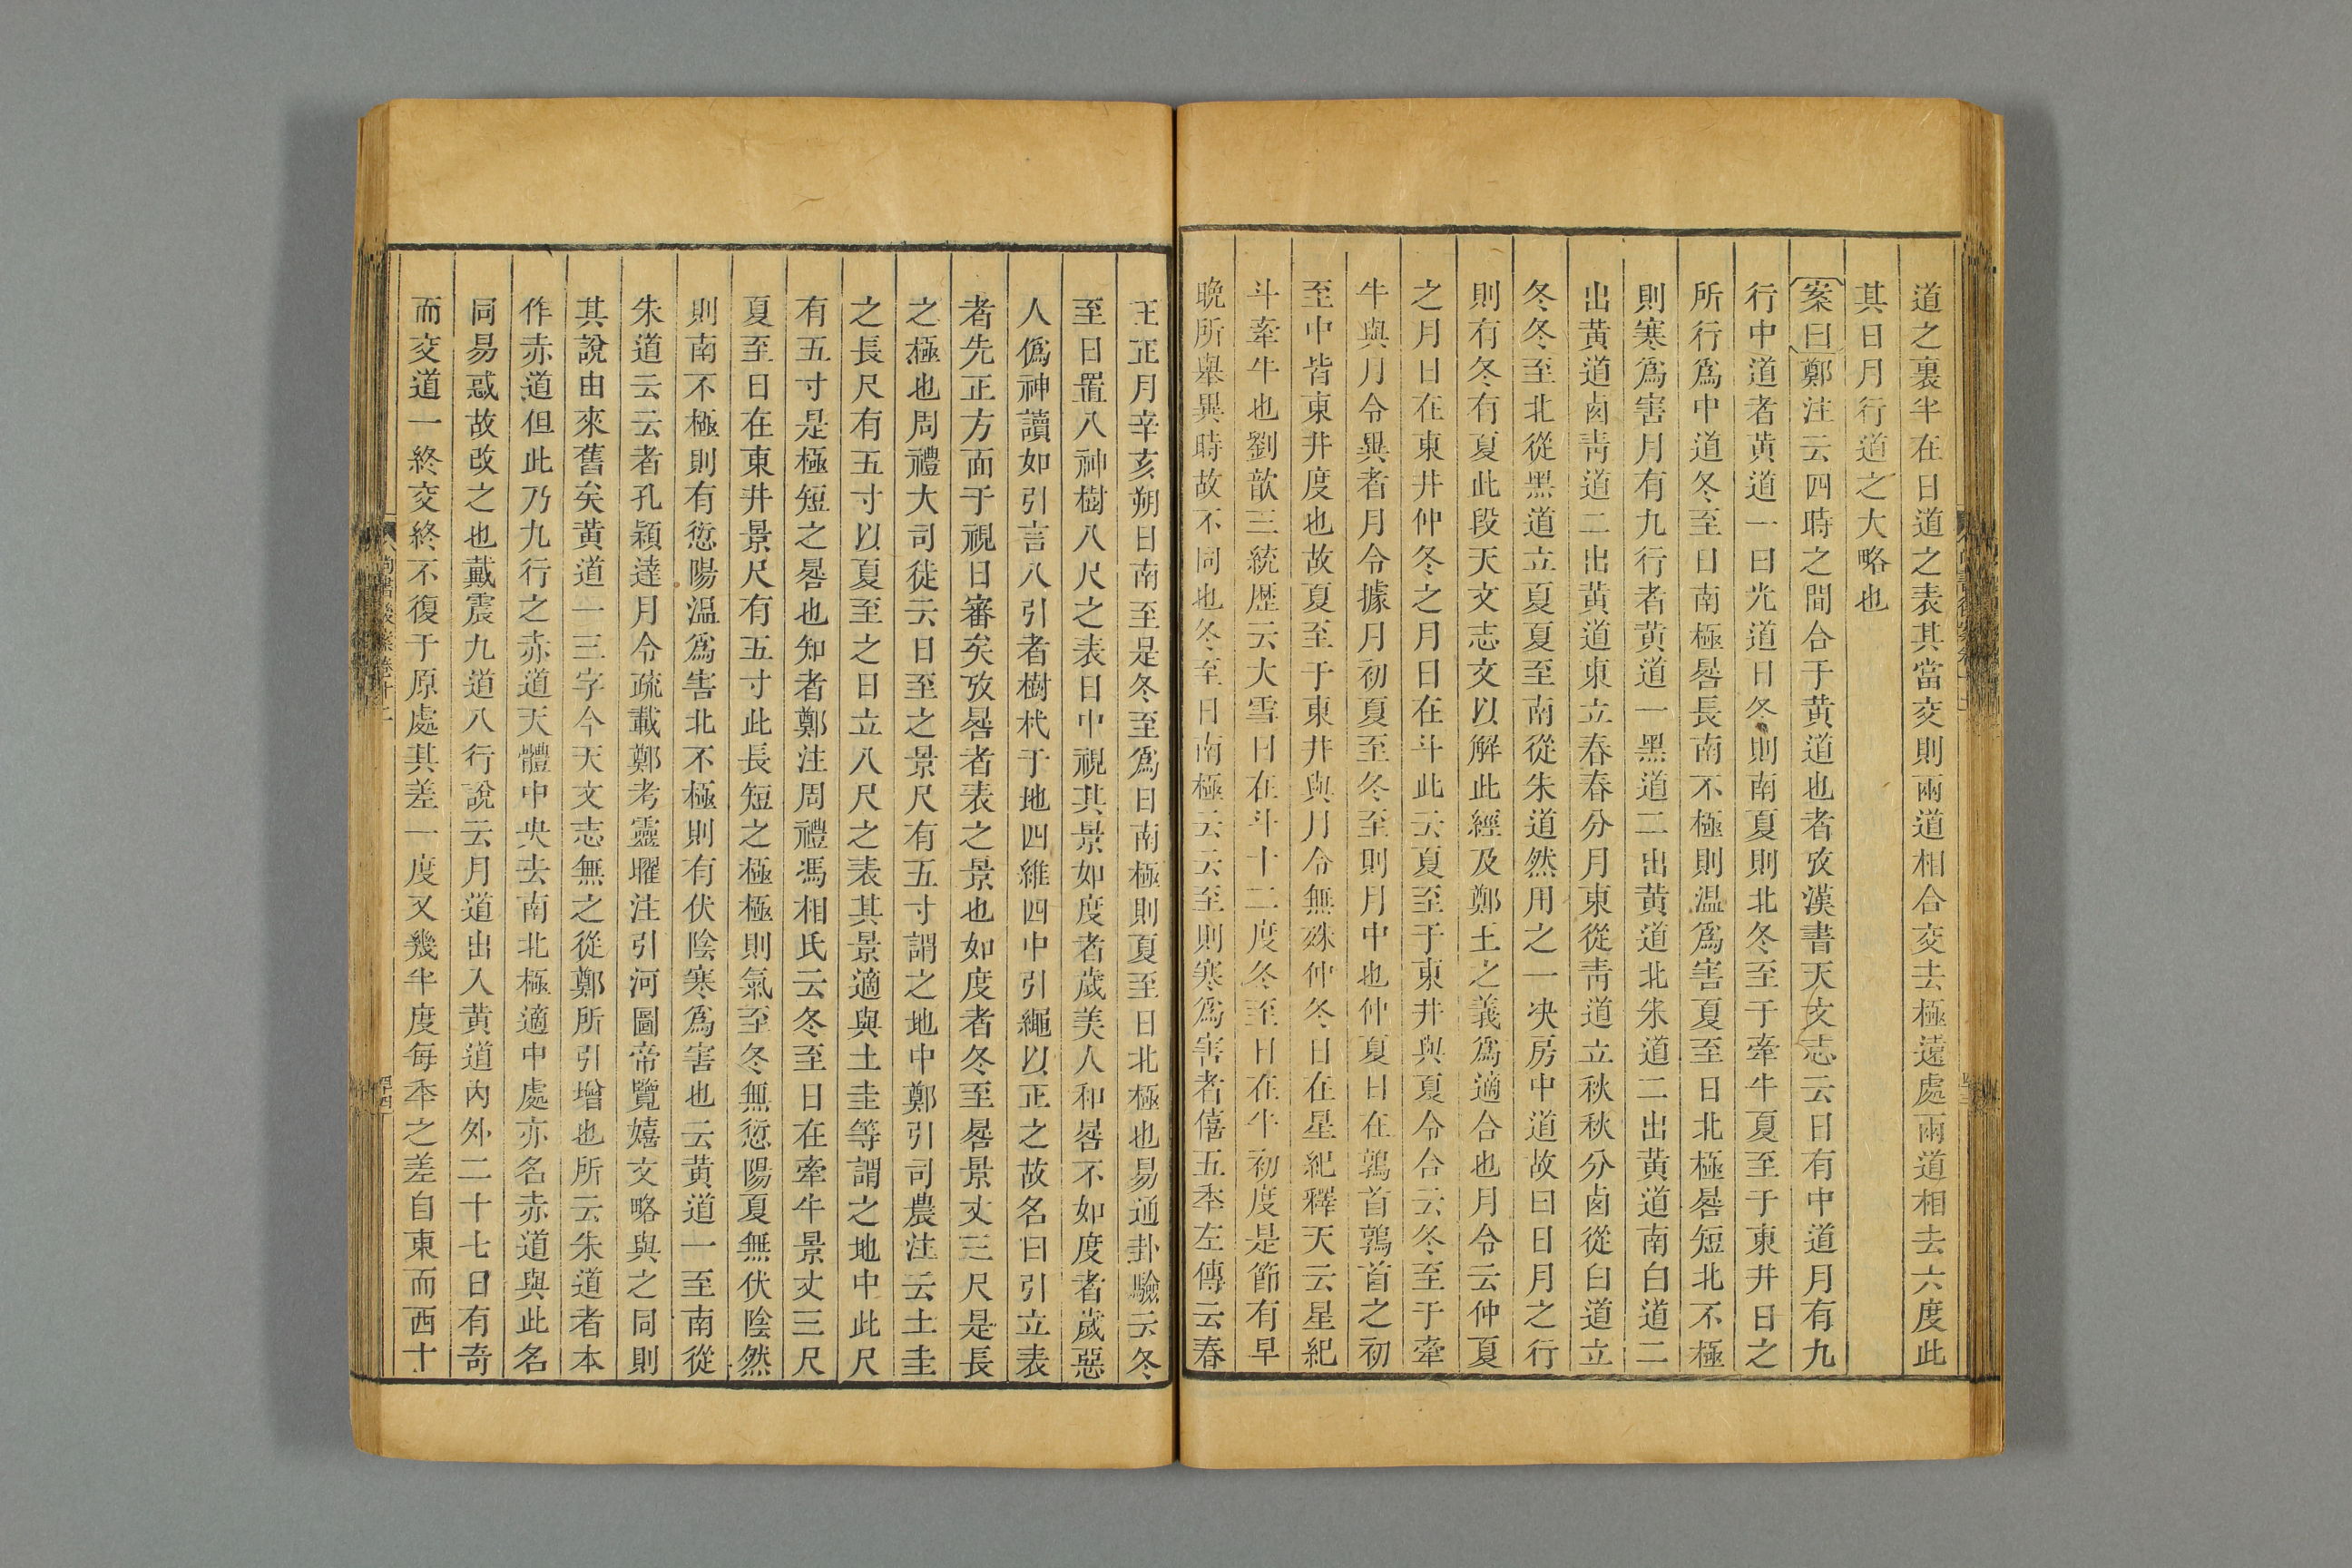 道之裏半在日道之表其當交則兩道相合交去極遠處兩道相去六度此
其日月行道之大略也
案曰鄭注云四時之間合于黄道也者攷漢書天文志云日有中道月有九
行中道者黄道一曰光道日冬則南夏則北冬至于牽牛夏至于東井日之
所行爲中道冬至日南極晷長南不極則温爲害夏至日北極晷短北不極
則寒爲害月有九行者黄道一黑道二出黄道北朱道二出黄道南白道二
出黄道卤靑道二出黄道東立春春分月東從靑道立秋秋分卤從白道立
冬冬至北從黑道立夏夏至南從朱道然用之一決房中道故曰日月之行
則有冬有夏此段天文志文以解此經及鄭王之義爲適合也月令云仲夏
之月日在東井仲冬之月日在斗此云夏至于東井與夏令合云冬至于牽
牛與月令異者月令據月初夏至冬至則月中也仲夏日在鶉首鶉首之初
至中皆東井度也故夏至于東井與月令無殊仲冬日在星紀釋天云星紀
斗牽牛也劉歆三統歴云大雪日在斗十二度冬至日在牛初度是節有早
晩所舉異時故不同也冬至日南極云云至則寒爲害者僖五秊左傳云春
王正月辛亥朔日南至是冬至爲日南極則夏至日北極也易通卦驗云冬
至日置八神樹八尺之表日中視其景如度者歲美人和晷不如度者歲惡
人僞神讀如引言八引者樹杙于地四維四中引繩以正之故名曰引立表
者先正方面于視日審矣攷晷者表之景也如度者冬至晷景丈三尺是長
之極也周禮大司徒云日至之景尺有五寸謂之地中鄭引司農注云土圭
之長尺有五寸以夏至之日立八尺之表其景適與土圭等謂之地中此尺
有五寸是極短之晷也知者鄭注周禮馮相氏云冬至日在牽牛景丈三尺
夏至日在東井景尺有五寸此長短之極極則氣至冬無愆陽夏無伏陰然
則南不極則有愆陽温爲害北不極則有伏陰寒爲害也云黄道一至南從
朱道云云者孔穎達月令疏載鄭考靈曜注引河圖帝覽嬉文略與之同則
其說由來舊矣黄道一三字今天文志無之從鄭所引增也所云朱道者本
作赤道但此乃九行之赤道天體中央去南北極適中處亦名赤道與此名
同易惑故改之也戴震九道八行說云月道出入黄道内外二十七日有奇
而交道一終交終不復于原處其差一度又幾半度每秊之差自東而西十